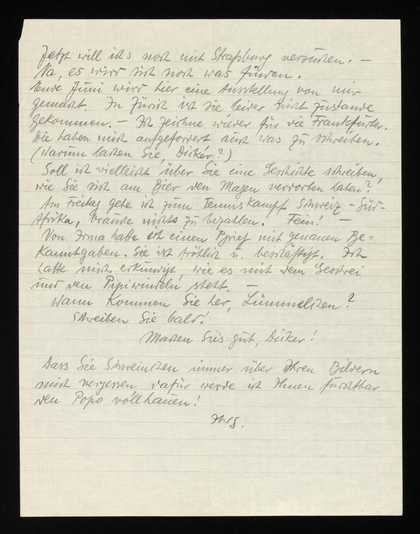 Jetzt will ich's noch mit Straßburg versuchen. —
Na, es wird sich noch was finden.
Ende Juni wird hier eine Ausstellung von mir
gemacht. In Zürich ist sie leider nicht zustande
gekommen. — Ich zeichne wieder für die Frankfurter.
Die haben mich aufgefordert auch was zu schreiben.
(Warum lachen Sie, Dicker?)
Soll ich vielleicht über Sie eine Geschichte schreiben,
wie Sie sich am Bier den Magen verdorben haben?!
Am Freitag gehe ich zum Tenniskampf Schweiz - Süd-
Afrika, brauche nichts zu bezahlen. Fein! —
Von Irma habe ich einen Brief mit genauen Be-
kanntgaben. Sie ist fröhlich u. beschäftigt. Ich
hatte mich erkundigt, wie es mit dem Geschrei
und den Pipiwindeln steht. —
Wann kommen Sie her, Lümmelchen?
Schreiben Sie bald!
Machen Sie's gut, Dicker!
Dass Sie Schweinchen immer über Ihren Bildern
mich vergessen dafür werde ich Ihnen furchtbar
den Popo vollhauen!